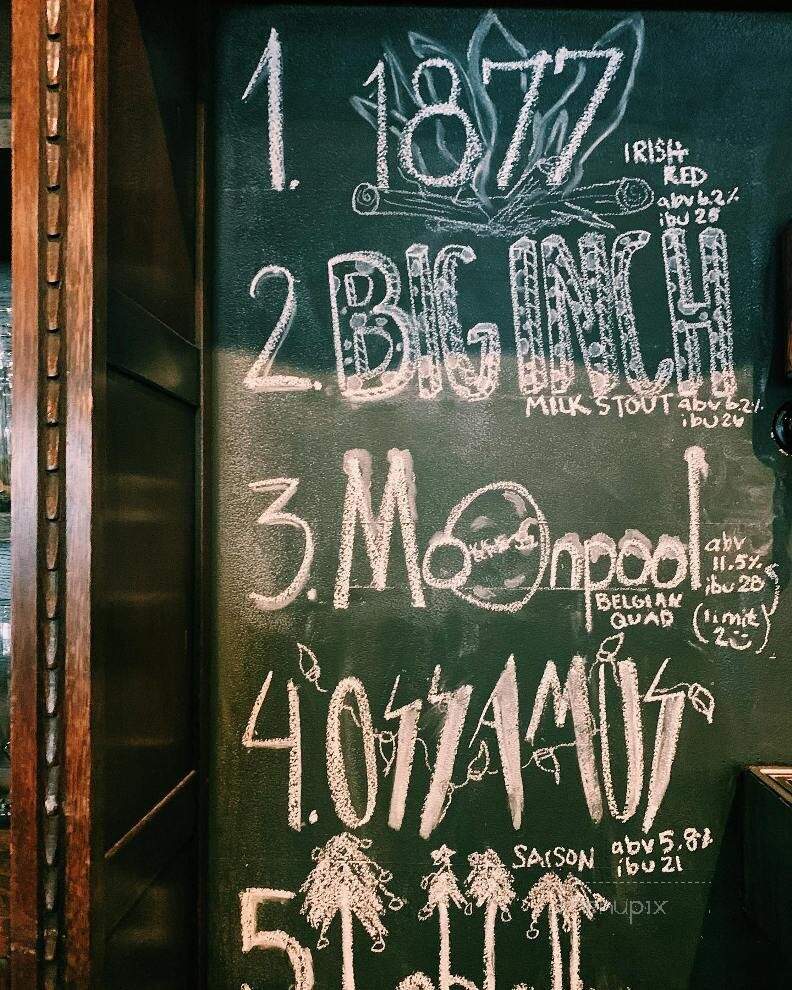 1. 1877
IRISH
RED
abv 6.2%
ibu 25
2. BIG INCH
MILK STOUT abv 6.2%
ibu 26
3. Moonpool
abv
11.5%
ibu 28
BELGIAN
QUAD
(limit
2)
4. OSSAMUS
SAISON abv 5.8%
ibu 21
5